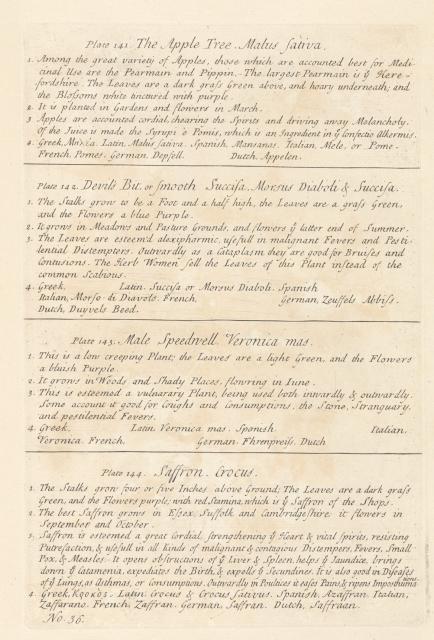 Plate 141. The Apple Tree. Malus sativa.
1. Among the great variety of Apples, those which are accounted best for Medi-
cinal Use are the Pearmain and Pippin. The largest Pearmain is ẏ Here-
fordshire. The Leaves are a dark graſs Green above, and hoary underneath; and
the Bloſsoms white tinctured with purple.
2. It is planted in Gardens and flowers in March.
3 Apples are accounted cordial, chearing the Spirits and driving away Melancholy.
Of the Juice is made the Syrupi e Pomis, which is an Ingredient in ẏ Confectio Alkermis.
4 Greek, Latin, Malus sativa. Spanish, Mansanas. Italian, Mele, or Pome.
French, Pomes. German, Depfell. Dutch, Appelen.
Plate 142. Devil's Bit, or smooth Succisa. Morsus Diaboli & Succisa.
1. The Stalks grow to be a Foot and a half high, the Leaves are a graſs Green,
and the Flowers a blue Purple.
2. It grows in Meadows and Pasture Grounds, and flowers ẏ latter end of Summer.
3. The Leaves are esteem'd alexipharmic, usefull in malignant Fevers and Pesti-
lential Distempers. Outwardly as a Cataplasm they are good for Bruises and
Contusions. The Herb Women sell the Leaves of this Plant instead of the
common Scabious.
4. Greek. Latin. Succisa or Morsus Diaboli. Spanish
Italian, Morso di Diavolo. French. German, Zeuffels Abbiss.
Dutch, Duyvels Beed.
Plate 143. Male Speedwell Veronica mas.
1. This is a low creeping Plant; the Leaves are a light Green, and the Flowers
a bluish Purple.
2. It grows in Woods and Shady Places, flowring in Iune.
3. This is esteemed a vulnerary Plant, being used both inwardly & outwardly.
Some account it good for Coughs and Consumptions, the Stone, Stranguary,
and pestilential Fevers.
4. Greek. Latin Veronica mas. Spanish. Italian.
Veronica. French. German. Ehrenpreiſs. Dutch
Plate 144. Saffron. Crocus.
1. The Stalks grow four or five Inches above Ground; The Leaves are a dark graſs
Green, and the Flowers purple, with red Stamina, which is ẏ Saffron of the Shops.
2. The best Saffron grows in Eſsex, Suffolk and Cambridgeſhire: it flowers in
September and October.
3. Saffron is esteemed a great Cordial, strengthening ẏ Heart & vital spirits, resisting
Putrefaction, & usefull in all Kinds of malignant & contagious Distempers, Fevers, Small
Pox, & Measles. It opens obstructions of ẏ Liver & Spleen, helps ẏ Jaundice, brings
down ẏ Catamenia, expediates the Birth, & expells ẏ Secundines. It is also good in Diseases
of ẏ Lungs, as Asthmas, or Consumptions. Outwardly in Poultices it eases Pains, & ripens Imposthumations.
4 Greek, Κρόκος. Latin, Crocus & Crocus sativus. Spanish, Azaffran. Italian,
Zaffarano. French, Zaffran. German, Saffran. Dutch, Saffraan.
No. 36.